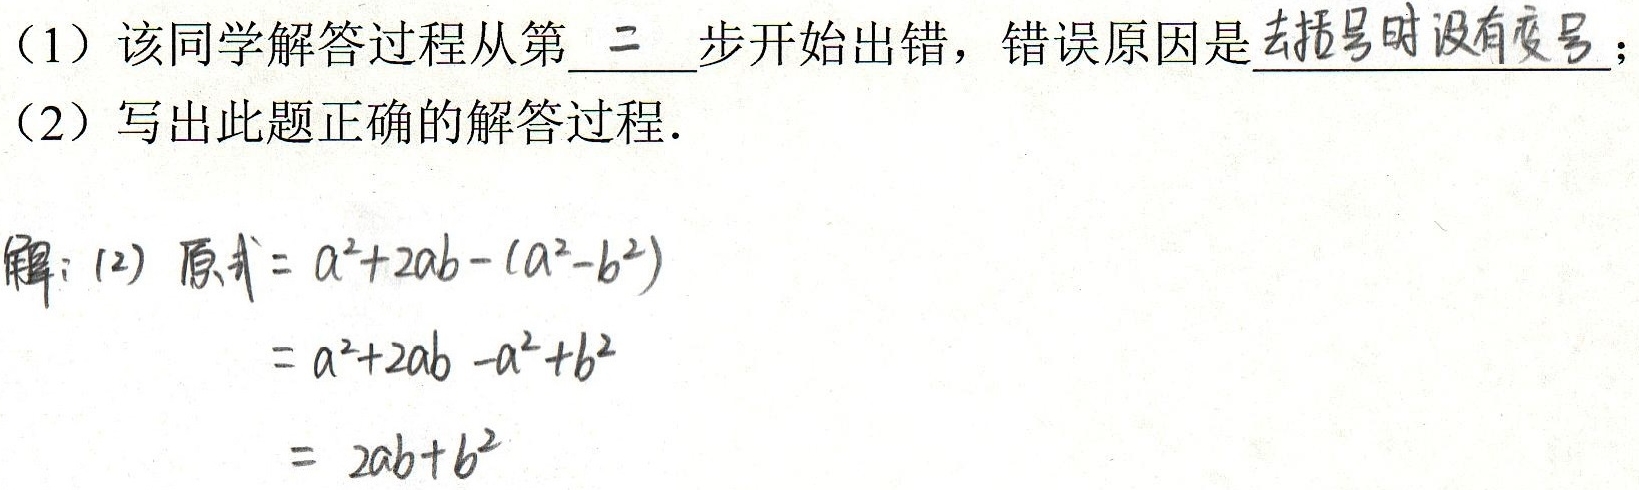 （1）该同学解答过程从第 二 步开始出错，错误原因是去括号时没有变号；
（2）写出此题正确的解答过程．
解：(2) 原式 = a²+2ab-(a²-b²)
= a²+2ab -a²+b²
= 2ab+b²